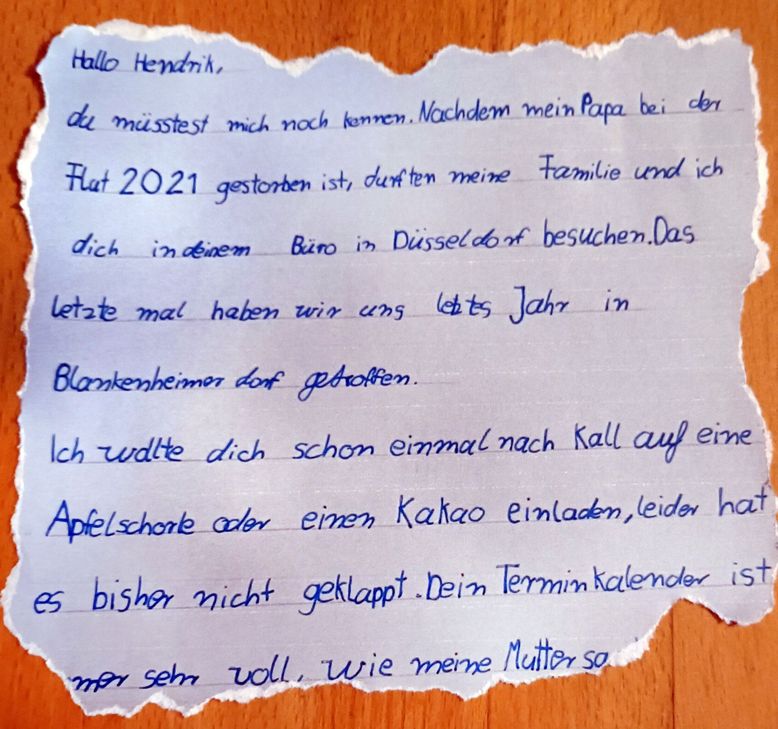 Hallo Hendrik,
du müsstest mich noch kennen. Nachdem mein Papa bei der
Flut 2021 gestorben ist, durften meine Familie und ich
dich in deinem Büro in Düsseldorf besuchen. Das
letzte mal haben wir uns letzts Jahr in
Blankenheimer dorf getroffen.
Ich wollte dich schon einmal nach Kall auf eine
Apfelschorle oder einen Kakao einladen, leider hat
es bisher nicht geklappt. Dein Terminkalender ist
mer sehr voll, wie meine Mutter so